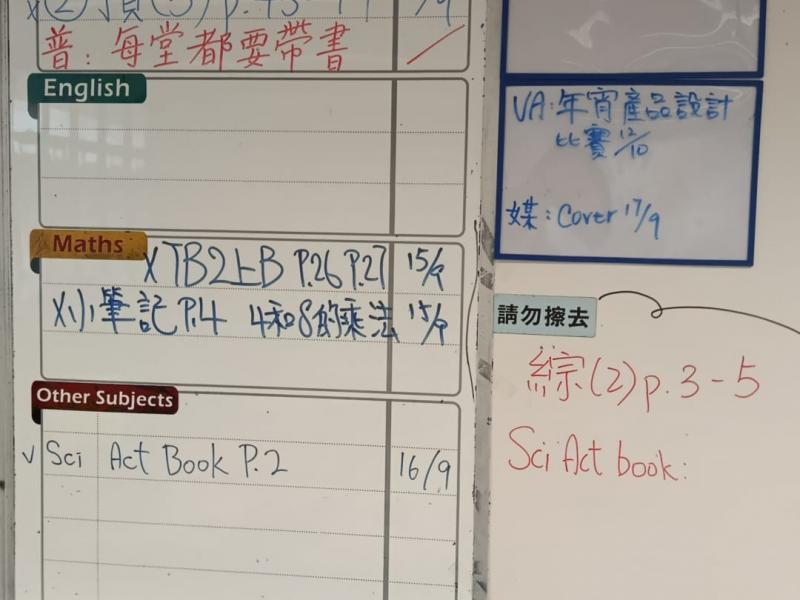 普：每堂都要帶書
English
Maths
X TB2上B P.26 P.27 15/9
X小筆記 P.4 4和8的乘法 15/9
Other Subjects
✓ Sci Act Book P.2 16/9
VA：年宵產品設計
比賽 12/10
媒：Cover 17/9
請勿擦去
綜(2) p.3-5
Sci Act book: